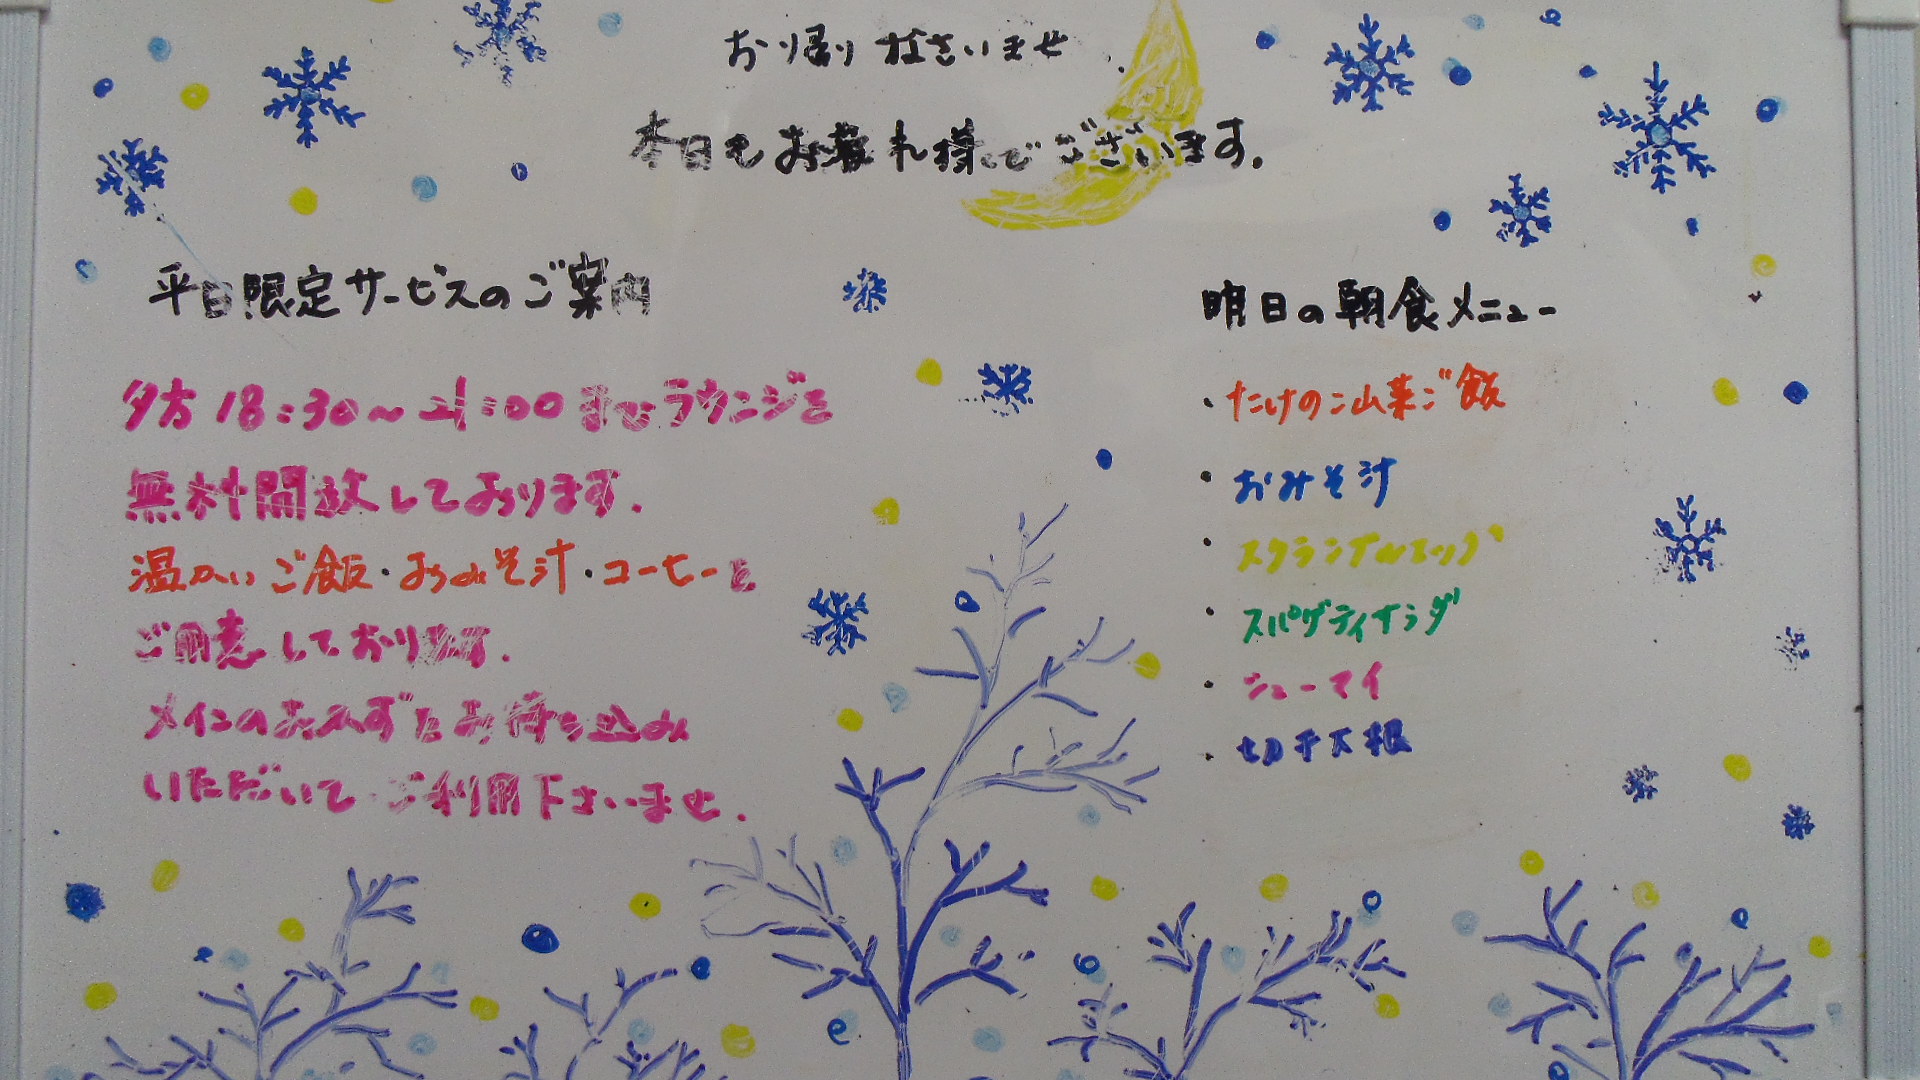 お帰りなさいませ.
本日もお疲れ様でございます。
平日限定サービスのご案内
夕方18:30～21:00までラウンジを
無料開放しております。
温かいご飯・おみそ汁・コーヒーを
ご用意しております。
メインのおかずをお持ち込み
いただいて ご利用下さいませ。
明日の朝食メニュー
・たけのこ山菜ご飯
・おみそ汁
・スクランブルエッグ
・スパゲティサラダ
・シューマイ
・切干大根